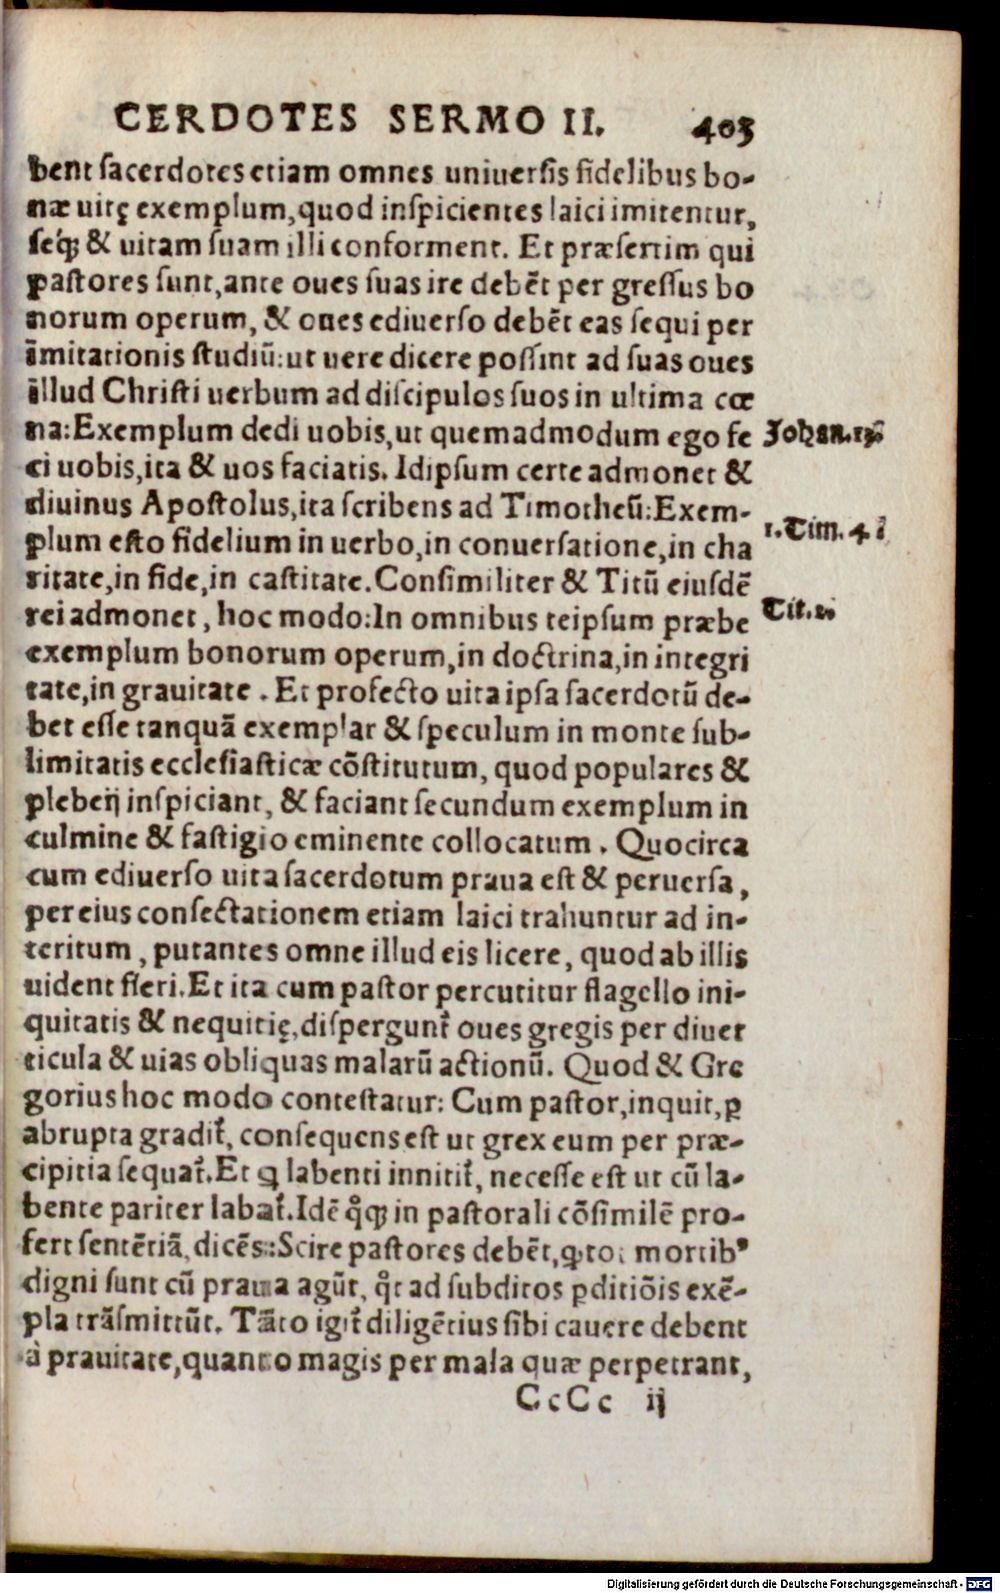 CERDOTES SERMO II. 403
bent sacerdotes etiam omnes uniuersis fidelibus bo-
næ uitę exemplum, quod inspicientes laici imitentur,
seq́ꝫ & uitam suam illi conforment. Et præsertim qui
pastores sunt, ante oues suas ire debēt per gressus bo
norum operum, & oues ediuerso debēt eas sequi per
imitationis studiū: ut uere dicere possint ad suas oues
illud Christi uerbum ad discipulos suos in ultima cœ
na: Exemplum dedi uobis, ut quemadmodum ego fe
Johan. 13
ci uobis, ita & uos faciatis. Idipsum certe admonet &
diuinus Apostolus, ita scribens ad Timotheū: Exem-
1. Tim. 4
plum esto fidelium in uerbo, in conuersatione, in cha
ritate, in fide, in castitate. Consimiliter & Titū eiusdē
Tit. 2
rei admonet, hoc modo: In omnibus teipsum præbe
exemplum bonorum operum, in doctrina, in integri
tate, in grauitate. Et profecto uita ipsa sacerdotū de-
bet esse tanquā exemplar & speculum in monte sub-
limitatis ecclesiasticæ cōstitutum, quod populares &
plebeij inspiciant, & faciant secundum exemplum in
culmine & fastigio eminente collocatum. Quocirca
cum ediuerso uita sacerdotum praua est & peruersa,
per eius consectationem etiam laici trahuntur ad in-
teritum, putantes omne illud eis licere, quod ab illis
uident fieri. Et ita cum pastor percutitur flagello ini-
quitatis & nequitię, dispergunt᷑ oues gregis per diuer
ticula & uias obliquas malarū actionū. Quod & Gre
gorius hoc modo contestatur: Cum pastor, inquit, ꝑ
abrupta gradit᷑, consequens est ut grex eum per præ-
cipitia sequat᷑. Et ꝗ labenti innitit᷑, necesse est ut cū la-
bente pariter labat᷑. Idē qͦqꝫ in pastorali cōsimilē pro-
fert sentētiā, dicēs: Scire pastores debēt, ꝙ tot mortibꝰ
digni sunt cū praua agūt, qͦt ad subditos ꝑditiōis exē-
pla trāsmittūt. Tāto igit᷑ diligētius sibi cauere debent
à prauitate, quanto magis per mala quæ perpetrant,
CcCc ij
Digitalisierung gefördert durch die Deutsche Forschungsgemeinschaft - DFG